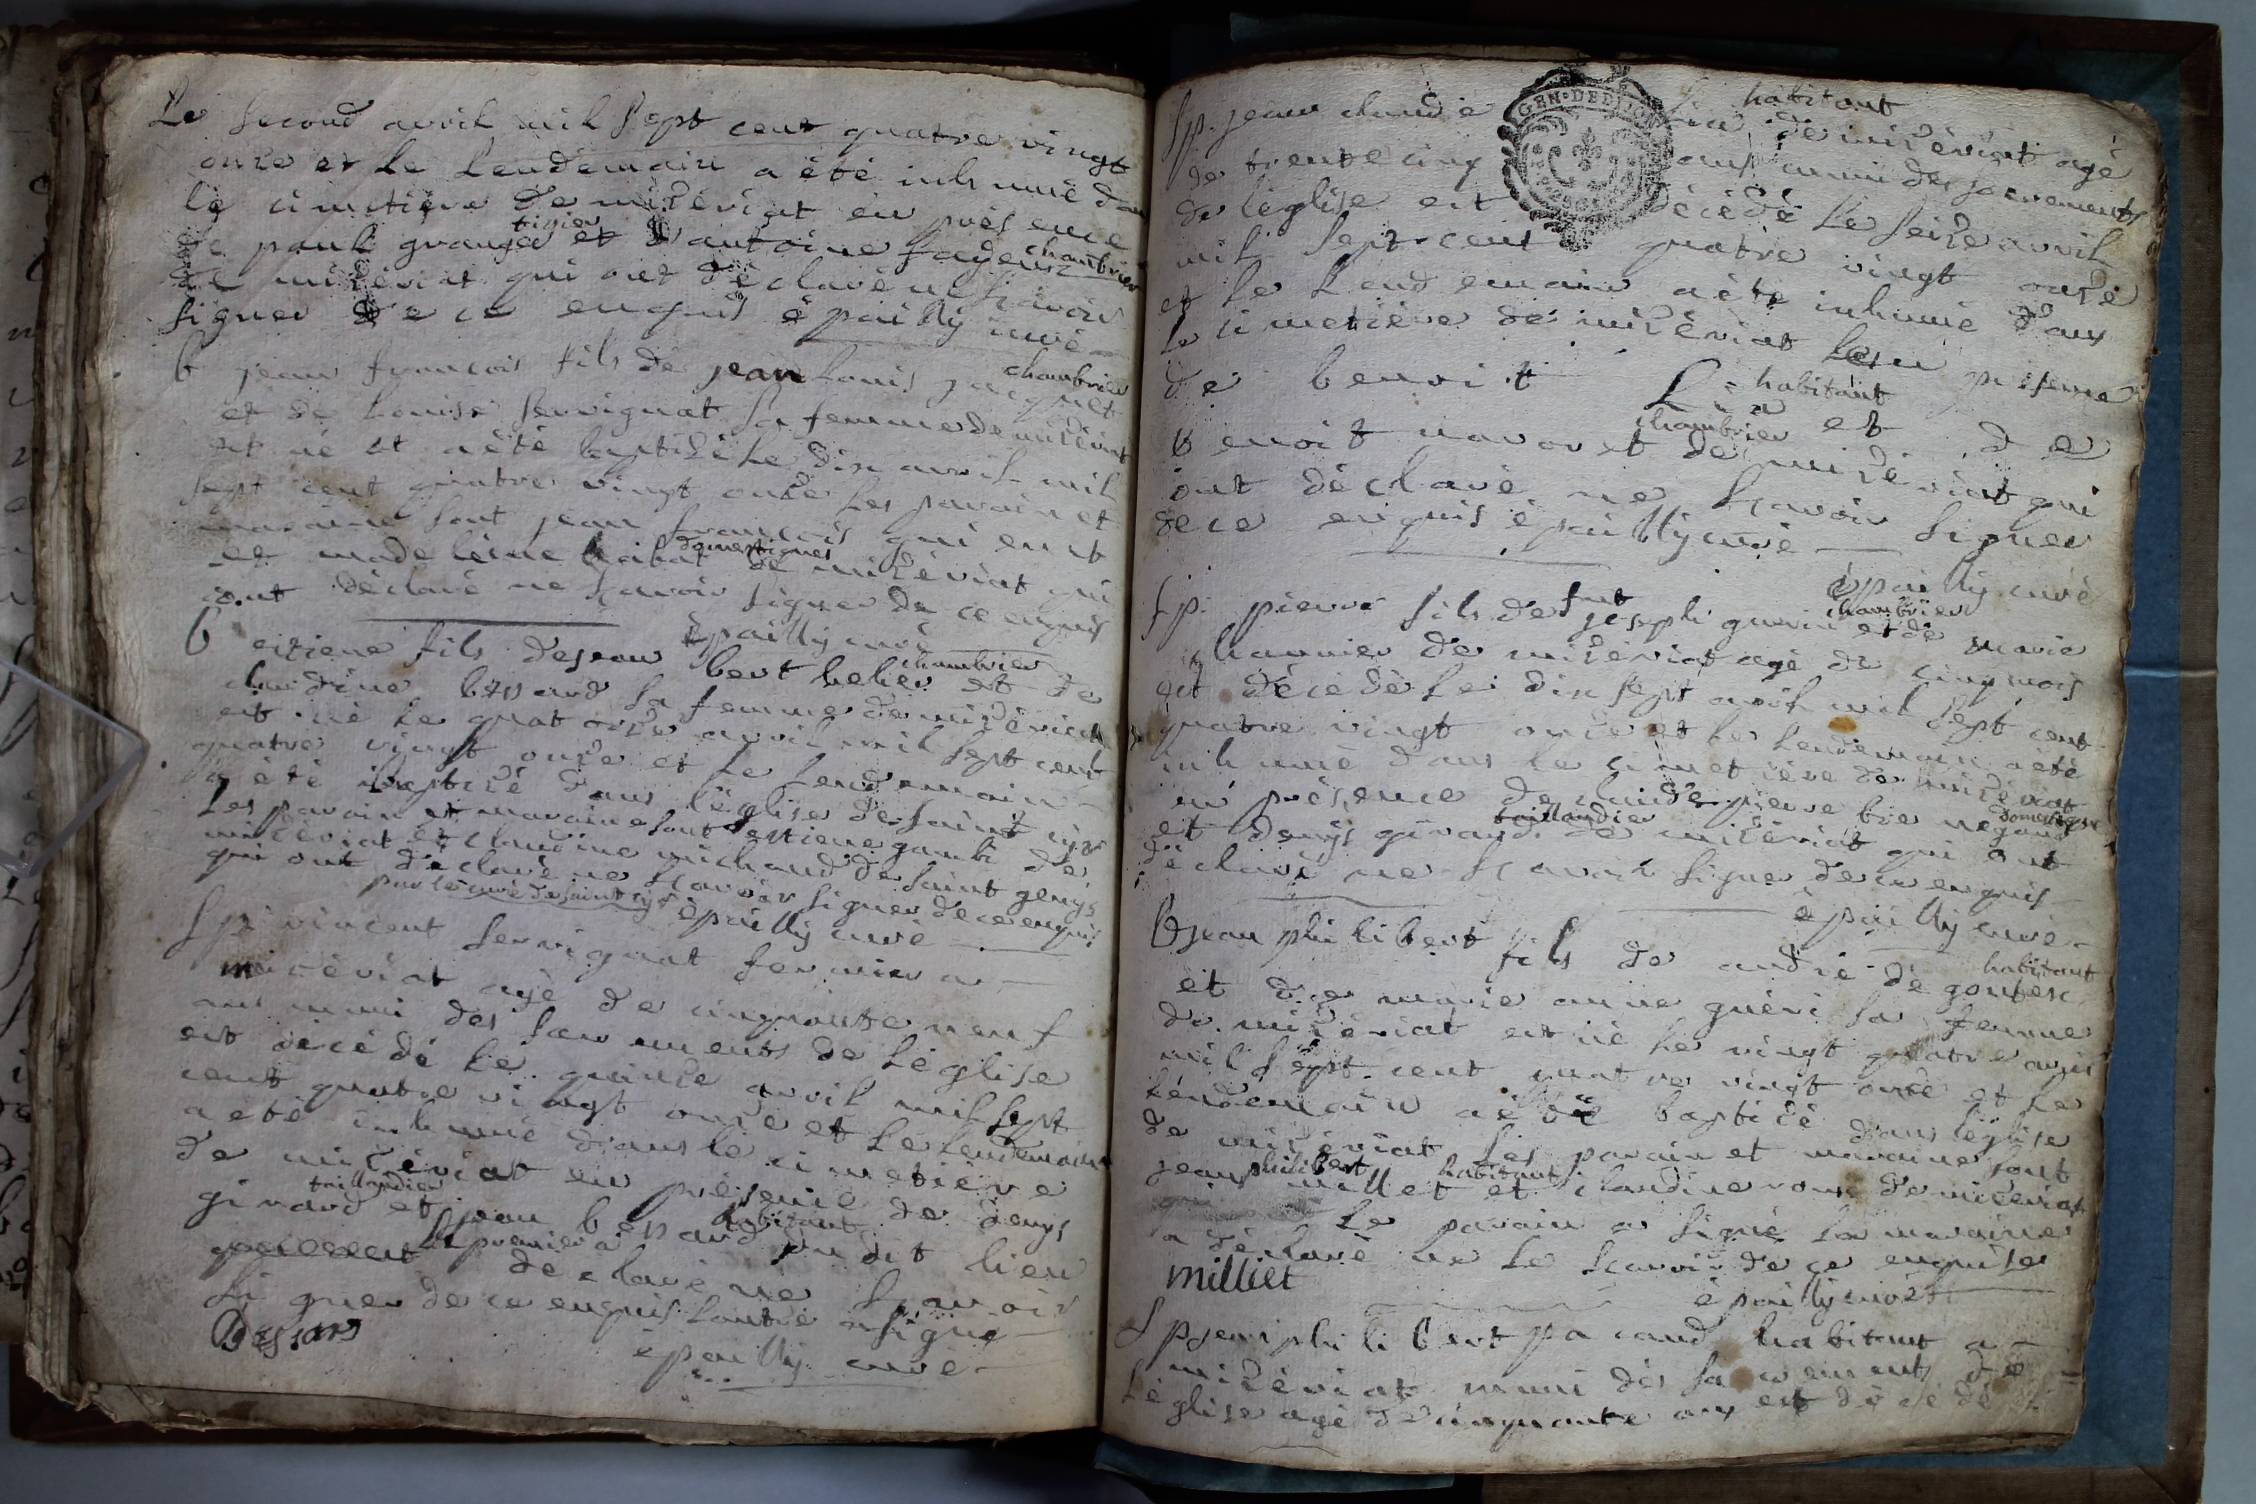 Le second avril mil sept cent quatre vingt
onze et le lendemain a été inhumé dans
le cimetière de mizériat en présence
de paul granger tixier et d'antoine fayeux chambrier
de mizériat qui ont déclaré ne scavoir
signer de ce enquis épailly curé
B jean francois fils de jean louis jacquet chambrier
et de louise servignat sa femme de mizériat
est né et a été baptizé le dix avril mil
sept cent quatre vingt onze les parain et
maraine sont jean francois
et madeleine domestiques de mizériat qui
ont déclaré ne scavoir signer de ce enquis
épailly curé
B etiene fils de jean berthelier chambrier et de
claudine besard sa femme de mizériat
est né le quatorze avril mil sept cent
quatre vingt onze et le lendemain
a été baptizé dans l'église de saint cyr
les parain et maraine sont estiene gambi de
mizériat et claudine michaud de saint genys
qui ont déclaré ne scavoir signer de ce enquis
par le curé de saint cyr épailly curé
Sp. vincent servignat fermier a
mizériat agé de cinquante neuf
ans muni des sacrements de l'église
est décédé le quinze avril mil sept
cent quatre vingt onze et le lendemain
a été inhumé dans le cimetière
de mizériat en présence de denys
girard taillandier et jean besard habitant du dit lieu
le premier a déclaré ne scavoir
signer de ce enquis l'autre a signé
Besard
épailly curé
GEN·DE DIJON
Sp. jean claude habitant de mizériat agé
de trente cinq ans muni des sacrements
de l'église est décédé le seize avril
mil sept cent quatre vingt onze
et le lendemain a été inhumé dans
le cimetière de mizériat en présence
de benoit habitant et de
Benoit navoret chambrier de mizériat qui
ont déclaré ne scavoir signer
de ce enquis épailly curé
épailly curé
Sp. pierre fils de fut joseph guerin chambrier et de marie
de mizériat agé de cinq mois
est décédé le dix sept avril mil sept cent
quatre vingt onze et le lendemain a été
inhumé dans le cimetière de mizériat
en présence de claude pierre domestique
et denys girard taillandier de mizériat qui ont
déclaré ne scavoir signer de ce enquis
épailly curé
B jean philibert fils de andré de gonfesc habitant
et de marie anne guéri sa femme
de mizériat est né le vingt quatre avril
mil sept cent quatre vingt onze et le
lendemain a été baptizé dans l'église
de mizériat les parain et maraine sont
jean philibert millet habitant et claudine de mizériat
le parain a signé la maraine
a déclaré ne le scavoir de ce enquise
milliet
épailly curé
Sp jean philibert pacaud habitant a
mizériat muni des sacrements de
l'église agé de cinquante ans est décédé